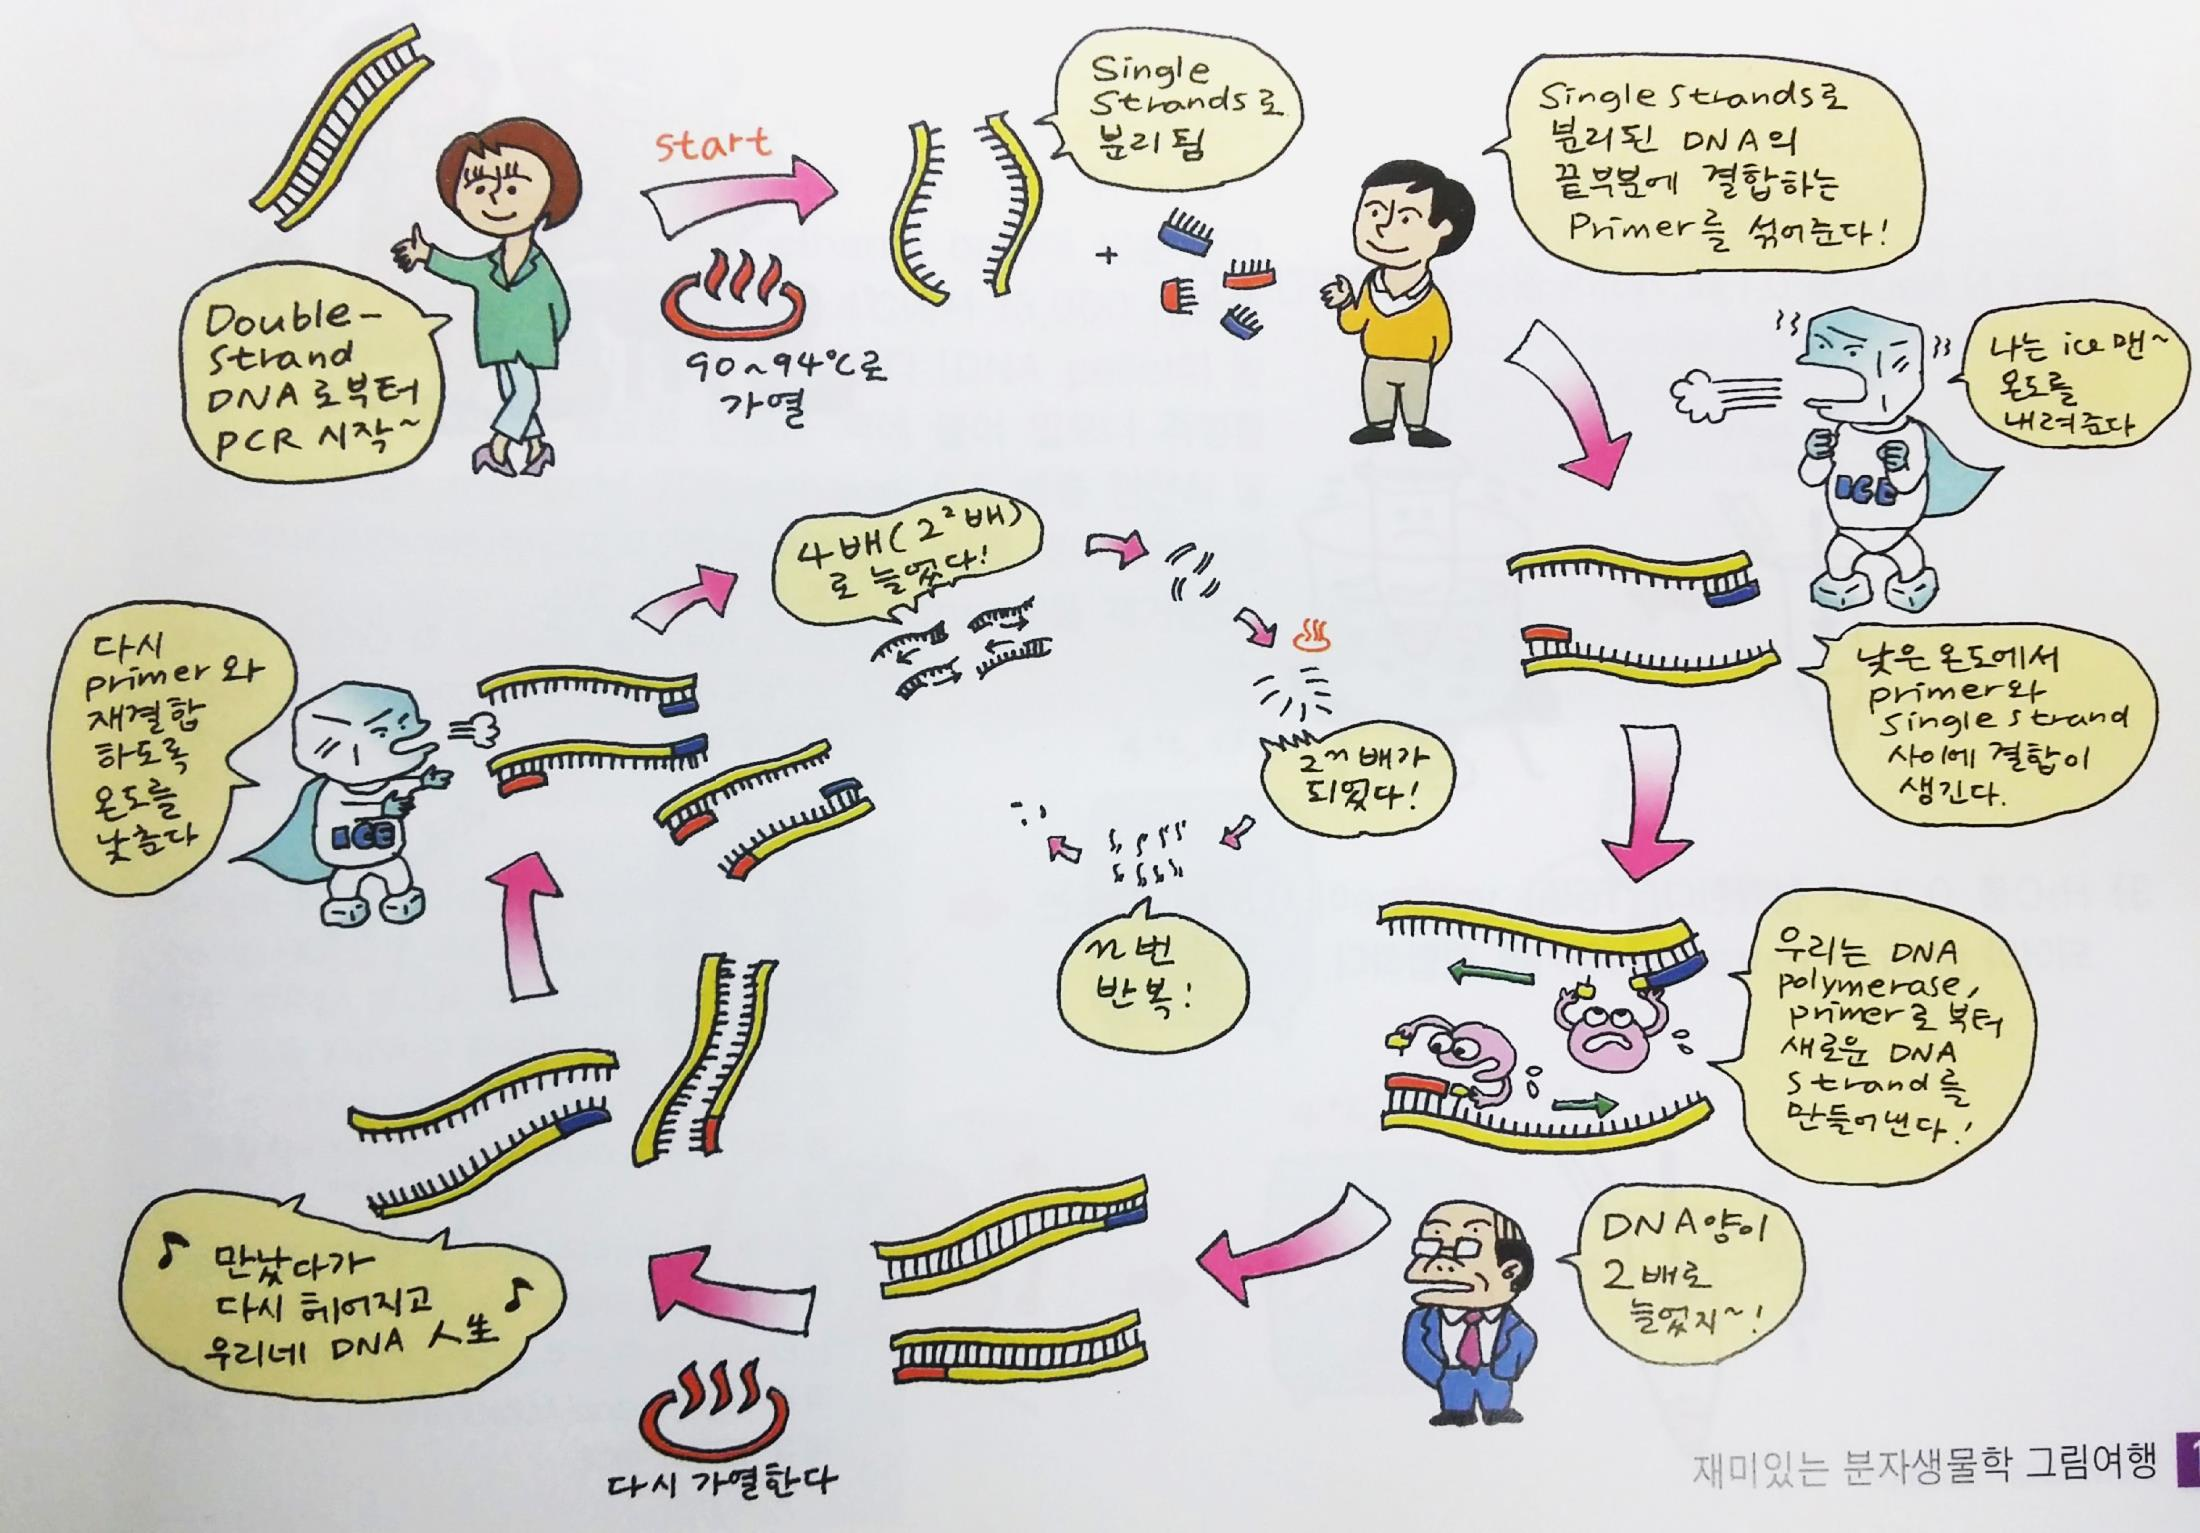 Double-
strand
DNA로부터
PCR 시작~
start
90~94℃로
가열
Single
Strands로
분리됨
+
Single strands로
분리된 DNA의
끝부분에 결합하는
Primer를 섞어준다!
나는 ice맨~
온도를
내려준다
ICE
낮은 온도에서
primer와
single strand
사이에 결합이
생긴다.
우리는 DNA
polymerase,
primer로부터
새로운 DNA
strand를
만들어낸다!
DNA양이
2배로
늘었지~!
다시 가열한다
♪ 만났다가
다시 헤어지고 ♪
우리네 DNA 人生
다시
primer와
재결합
하도록
온도를
낮춘다
ICE
4배(2²배)
로 늘었다!
2ⁿ배가
되었다!
n번
반복!
재미있는 분자생물학 그림여행